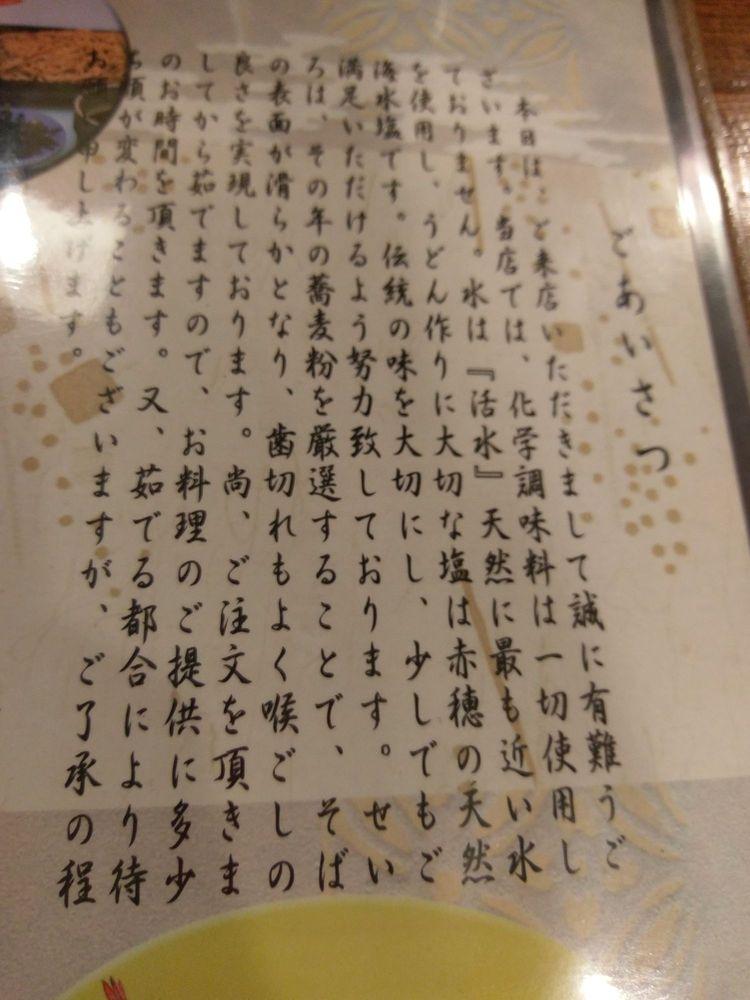 ごあいさつ
本日は、ご来店いただきまして誠に有難うご
ざいます。当店では、化学調味料は一切使用し
ておりません。水は『活水』天然に最も近い水
を使用し、うどん作りに大切な塩は赤穂の天然
海水塩です。伝統の味を大切にし、少しでもご
満足いただけるよう努力致しております。せい
ろは、その年の蕎麦粉を厳選することで、そば
の表面が滑らかとなり、歯切れもよく喉ごしの
良さを実現しております。尚、ご注文を頂きま
してから茹でますので、お料理のご提供に多少
のお時間を頂きます。又、茹でる都合により待
ち順が変わることもございますが、ご了承の程
お願い申し上げます。